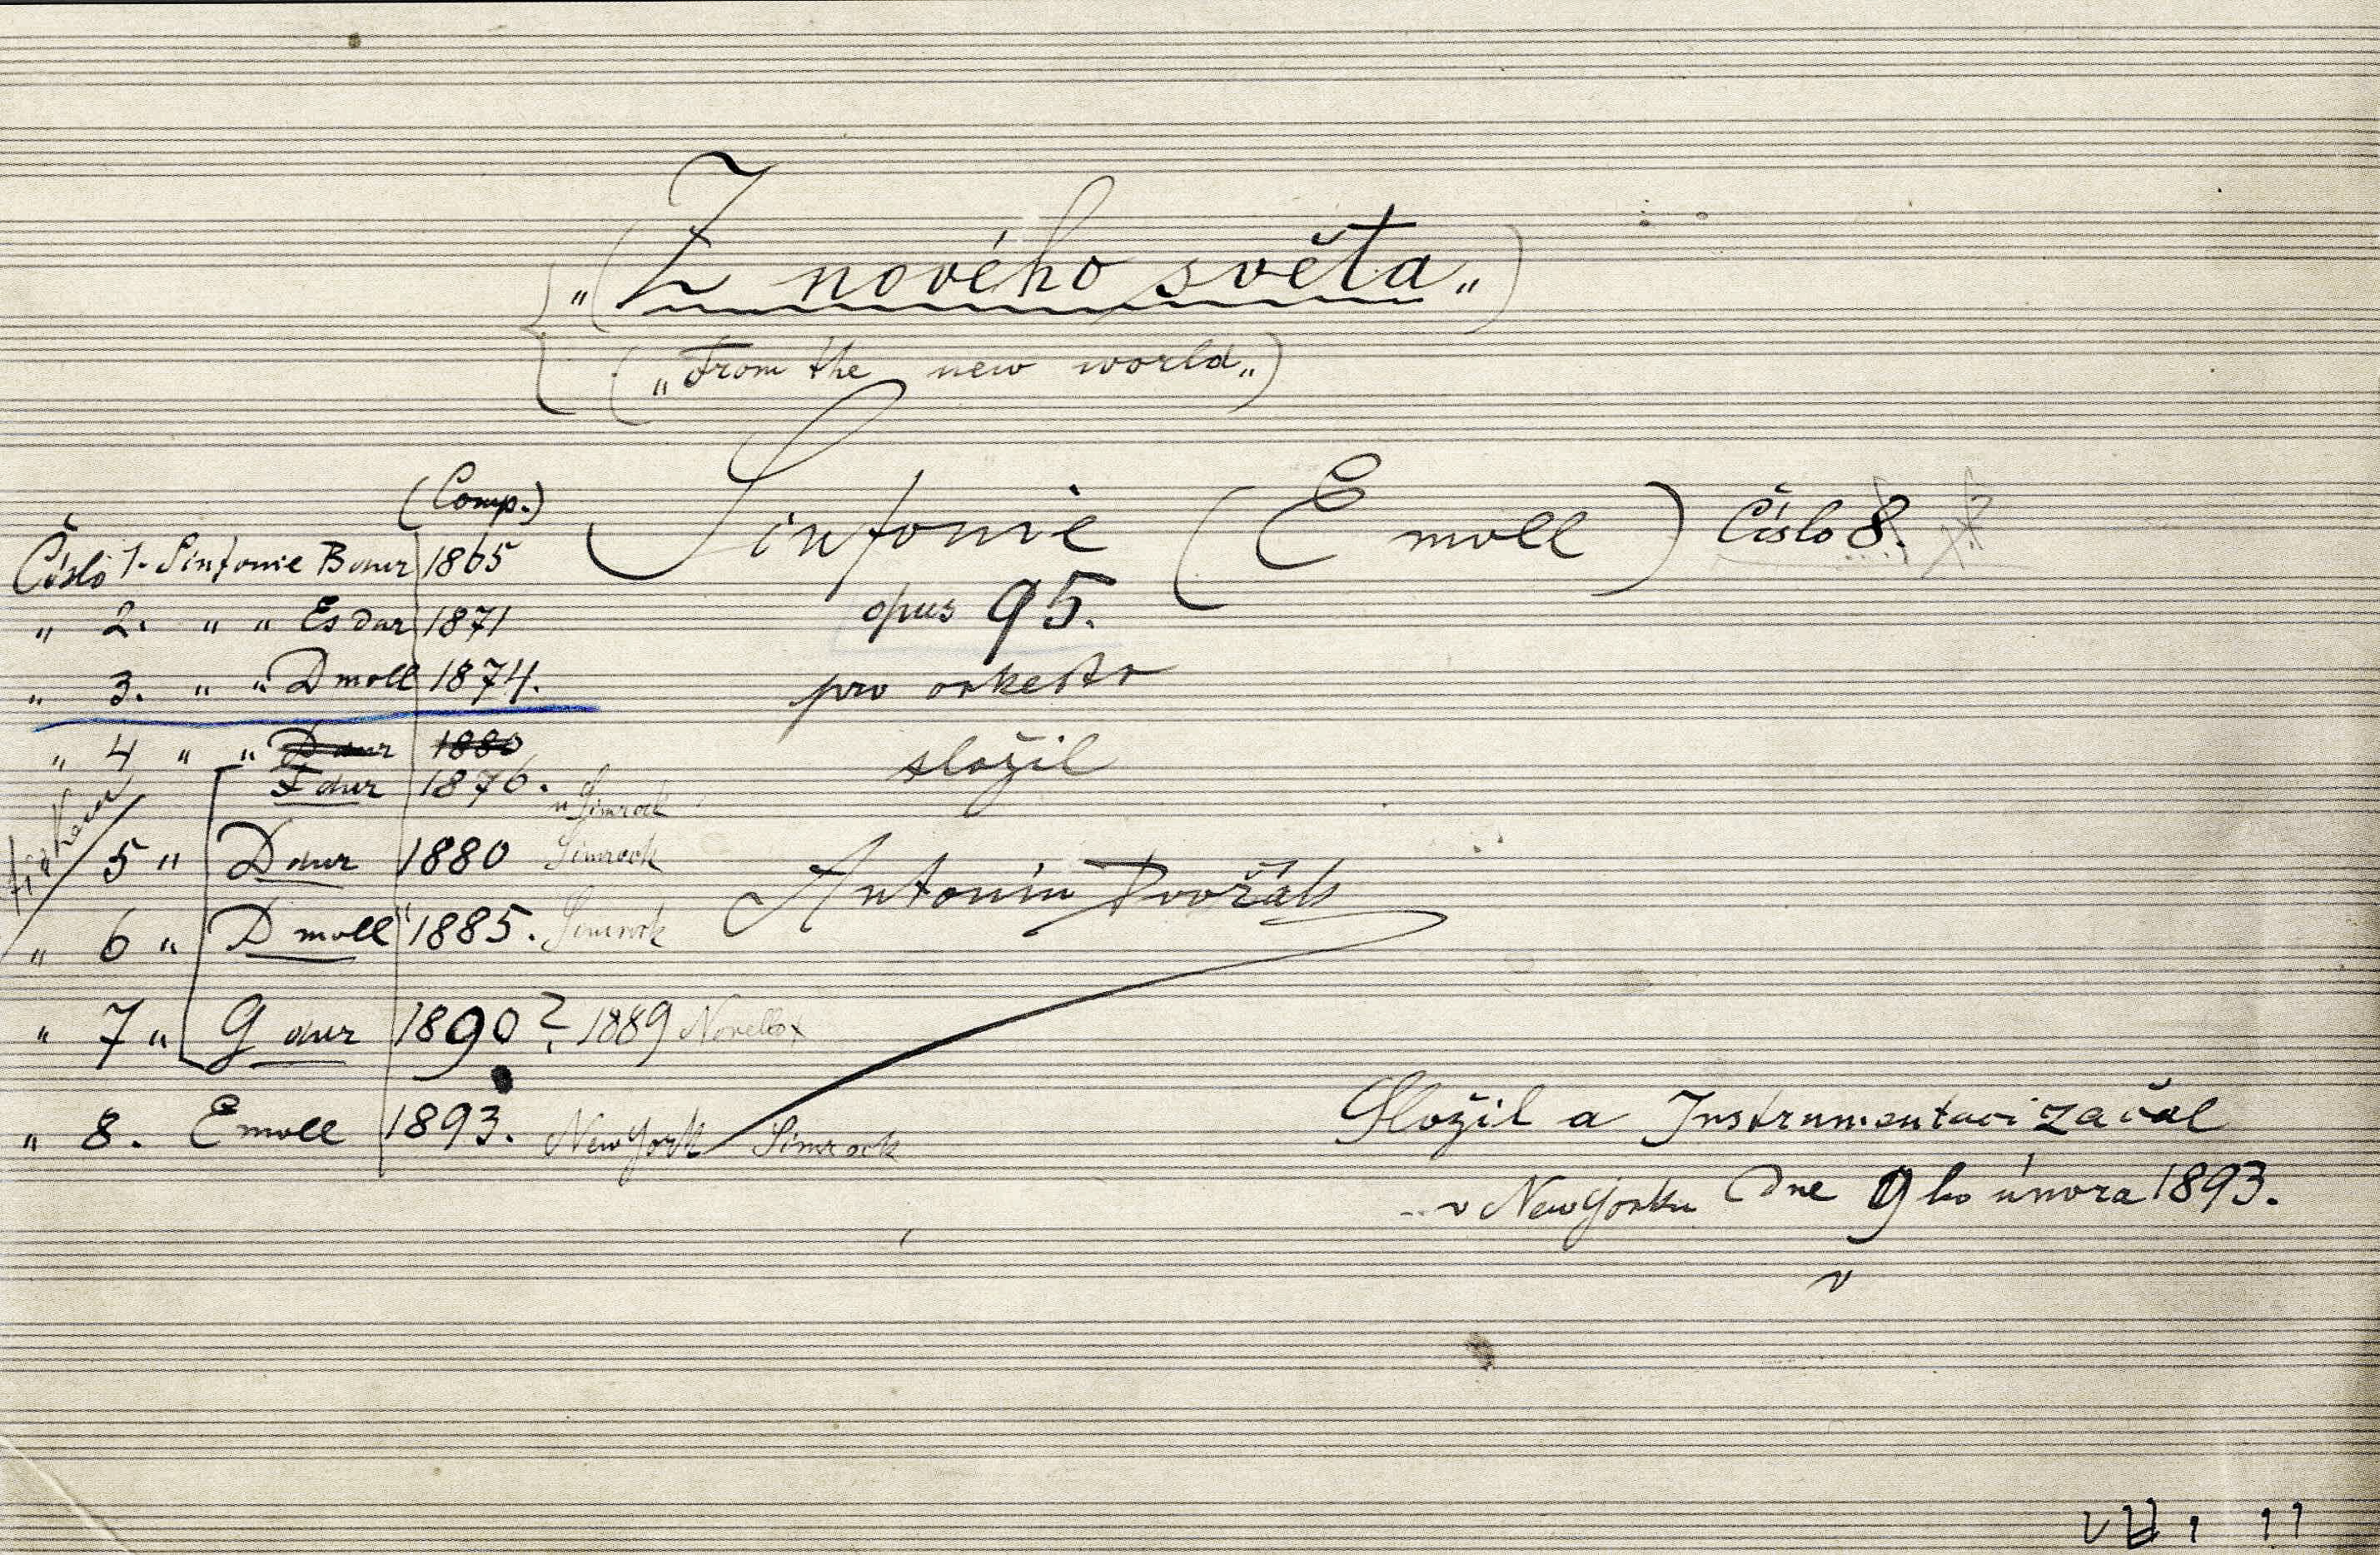 „Z nového světa„
(„From the new world„)
Sinfonie (E moll) Číslo 8.
opus 95.
pro orkestr
složil
Antonín Dvořák
(Comp.)
Číslo 1. Sinfonie B dur 1865
„ 2. „ „ Es dur 1871
„ 3. „ „ D moll 1874.
„ 4 „ „ D dur 1880
F dur 1876. u Simrock
5 „ D dur 1880 Simrock
„ 6 „ D moll 1885. Simrock
„ 7 „ G dur 1890? 1889 Novello
„ 8. E moll 1893. New York Simrock
Složil a Instrumentaci začal
v New Yorku dne 9ho února 1893.
v